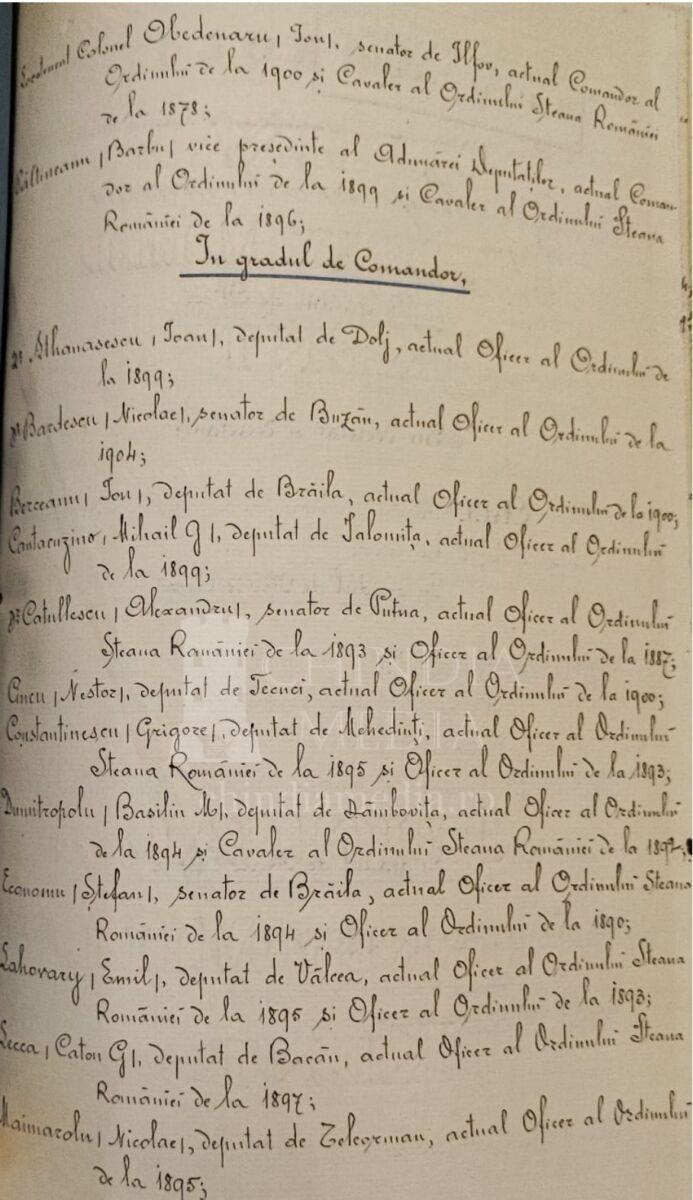 Colonel Obedenaru /Ion/, senator de Ilfov, actual Comandor al
Ordinului de la 1900 și Cavaler al Ordinului Steaua României
de la 1878;
/Barbu/ vice președinte al Adunărei Deputaților, actual Coman-
dor al Ordinului de la 1899 și Cavaler al Ordinului Steaua
României de la 1896;
In gradul de Comandor,
Dr Athanasescu /Ioan/, deputat de Dolj, actual Oficer al Ordinului de
la 1899;
Dr Bardescu /Nicolae/, senator de Buzău, actual Oficer al Ordinului de la
1904;
Berceanu /Ion/, deputat de Brăila, actual Oficer al Ordinului de la 1900;
Cantacuzino /Mihail G/, deputat de Ialomița, actual Oficer al Ordinului
de la 1899;
Dr Catullescu /Alexandru/, senator de Putna, actual Oficer al Ordinului
Steaua României de la 1893 și Oficer al Ordinului de la 1887;
Cincu /Nestor/, deputat de Tecuci, actual Oficer al Ordinului de la 1900;
Constantinescu /Grigore/, deputat de Mehedinți, actual Oficer al Ordinului
Steaua României de la 1895 și Oficer al Ordinului de la 1893;
Dumitropolu /Basiliu M/, deputat de Dâmbovița, actual Oficer al Ordinului
de la 1894 și Cavaler al Ordinului Steaua României de la
Economu /Ștefan/, senator de Brăila, actual Oficer al Ordinului Steaua
României de la 1894 și Oficer al Ordinului de la 1890;
Lahovary /Emil/, deputat de Vâlcea, actual Oficer al Ordinului Steaua
României de la 1895 și Oficer al Ordinului de la 1893;
Lecca /Caton G/, deputat de Bacău, actual Oficer al Ordinului Steaua
României de la 1897;
Maimarolu /Nicolae/, deputat de Teleorman, actual Oficer al Ordinului
de la 1895;